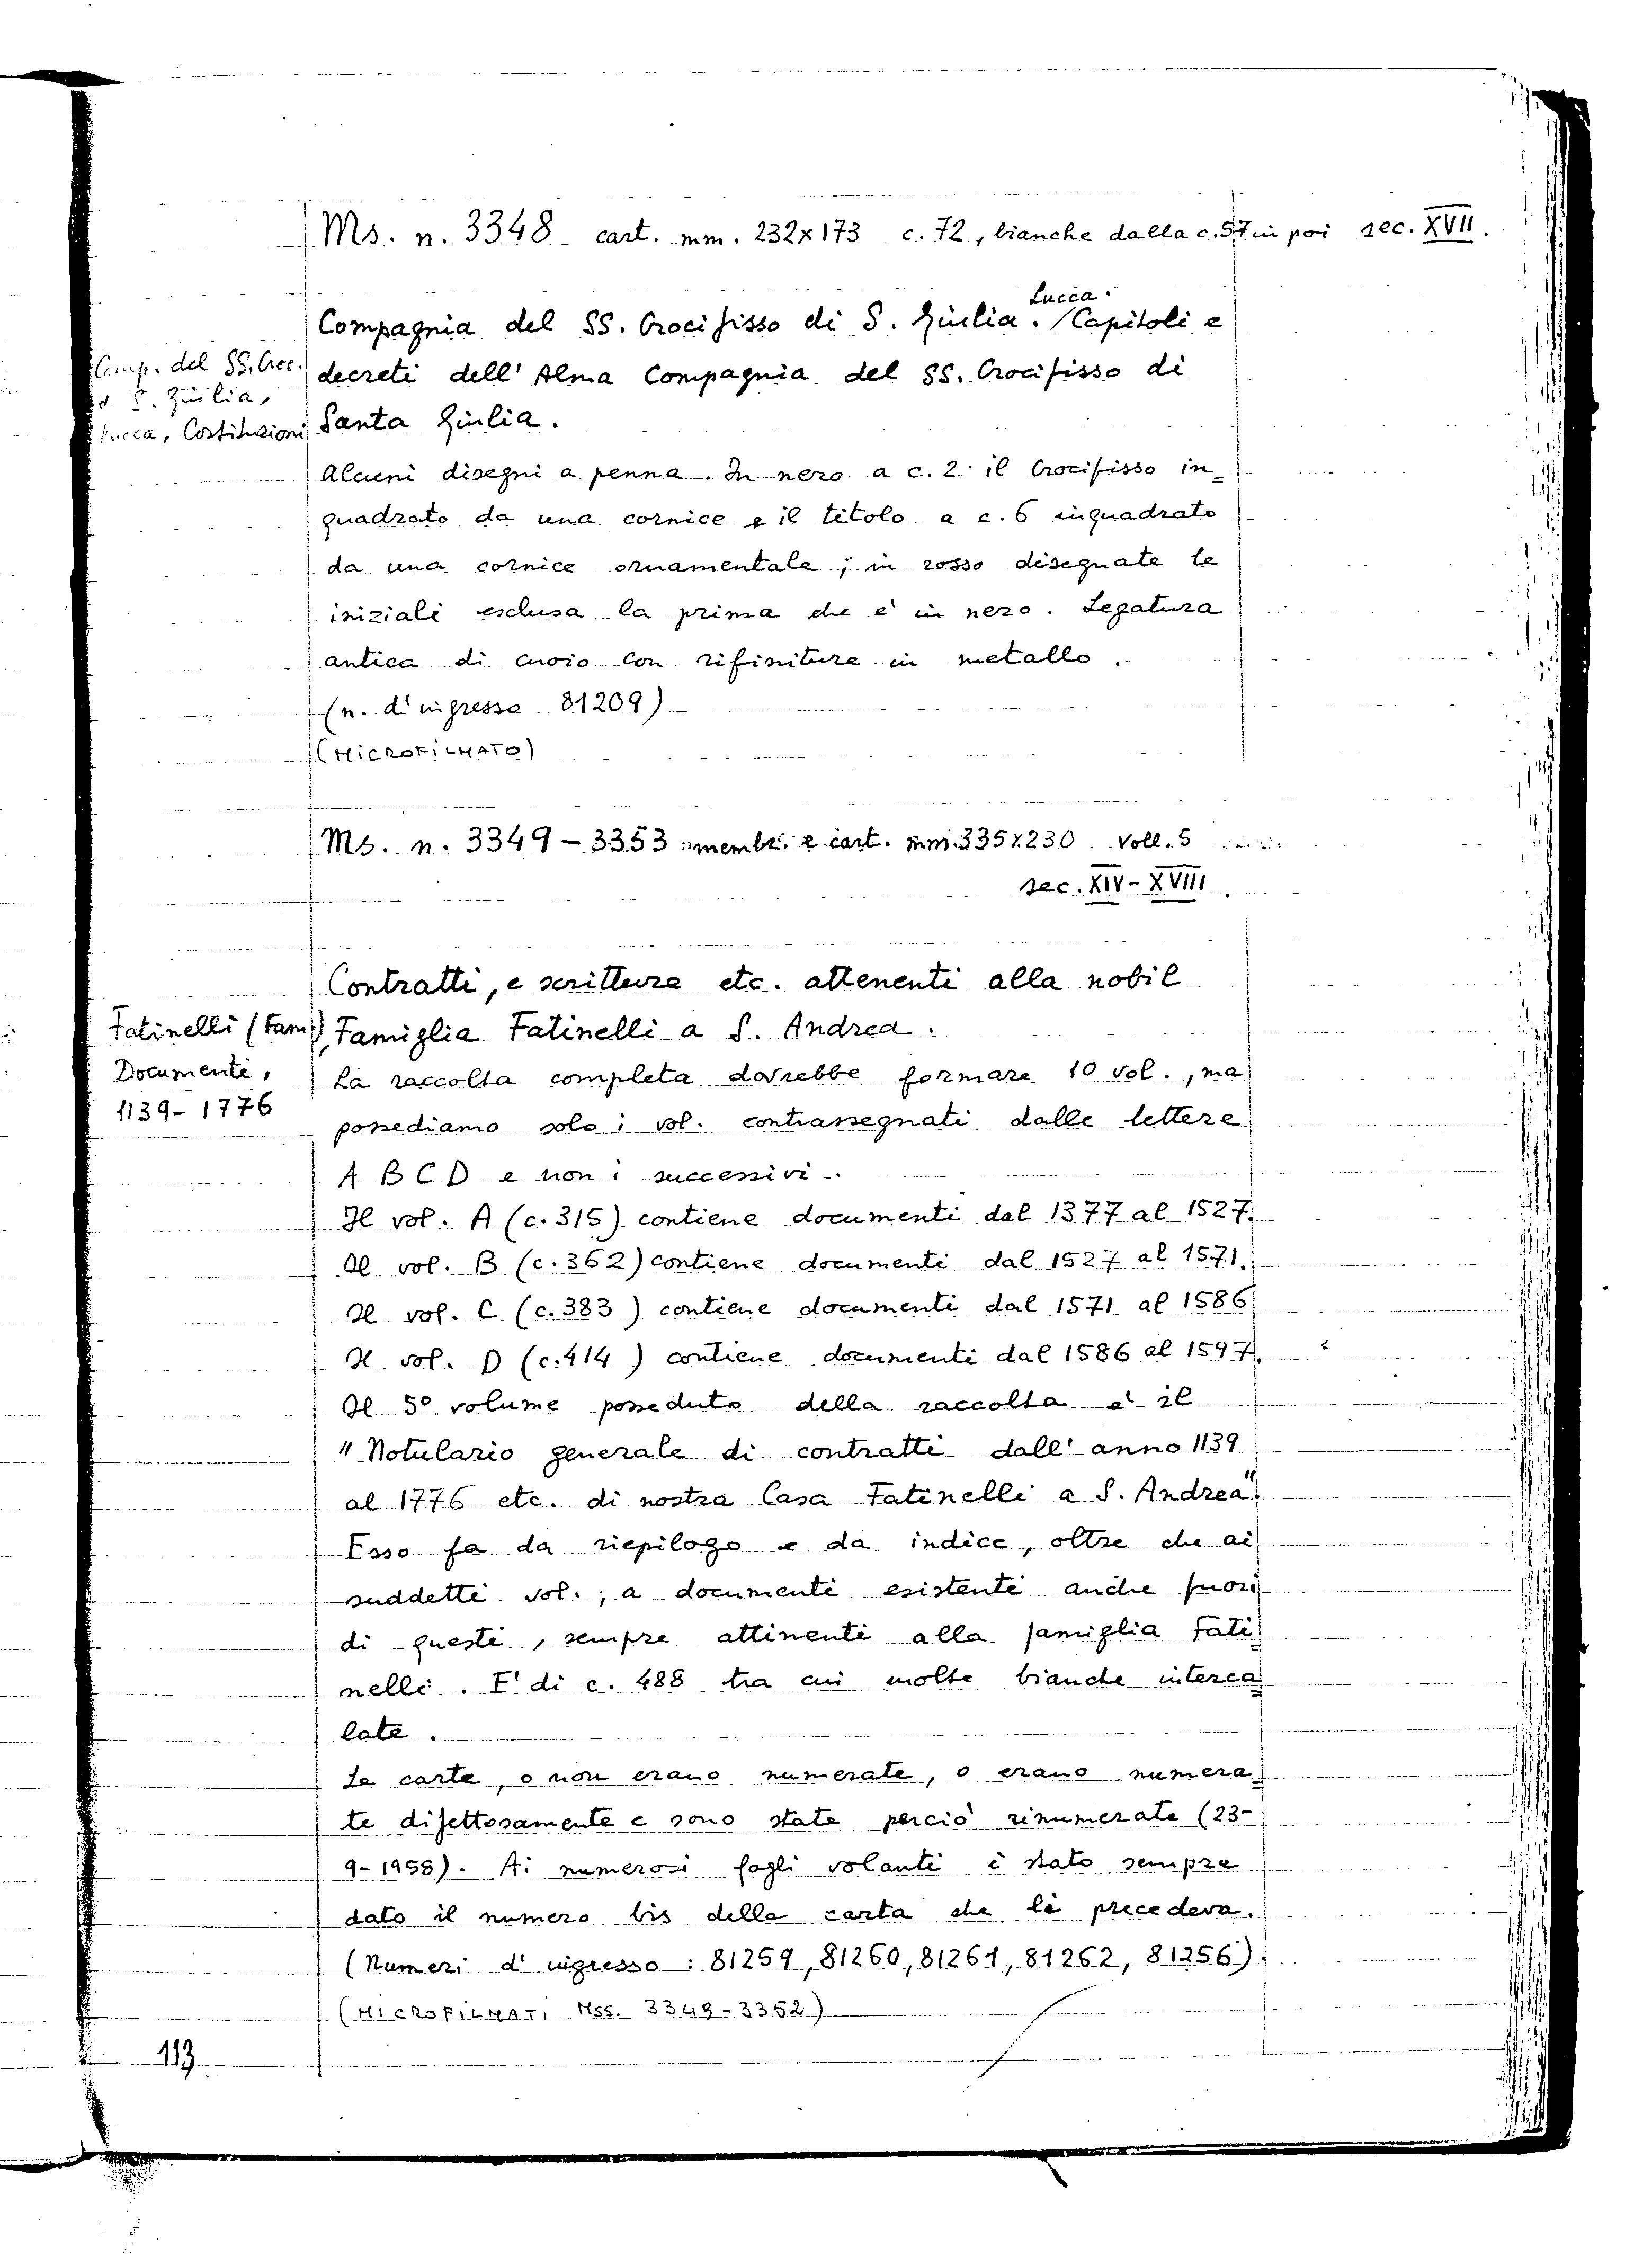 Ms. n. 3348 cart. mm. 232x173 c. 72, bianche dalla c. 57 in poi sec. XVII.
Lucca.
Compagnia del SS. Crocifisso di S. Giulia. / Capitoli e
decreti dell' Alma Compagnia del SS. Crocifisso di
Santa Giulia.
Comp. del SS. Croc.
S. Giulia,
Lucca, Costituzioni
Alcuni disegni a penna. In nero a c. 2 il Crocifisso in=
quadrato da una cornice e il titolo a c. 6 inquadrato
da una cornice ornamentale; in rosso disegnate le
iniziali esclusa la prima che e' in nero. Legatura
antica di cuoio con rifiniture in metallo.
(n. d'ingresso 81209)
(MICROFILMATO)
Ms. n. 3349 - 3353 membr. e cart. mm. 335x230 Voll. 5
sec. XIV - XVIII.
Contratti, e scritture etc. attenenti alla nobil
Famiglia Fatinelli a S. Andrea.
Fatinelli (Fam.),
Documenti,
1139 - 1776
La raccolta completa dovrebbe formare 10 vol., ma
possediamo solo i vol. contrassegnati dalle lettere
A B C D e non i successivi.
Il vol. A (c. 315) contiene documenti dal 1377 al 1527.
Il vol. B (c. 362) contiene documenti dal 1527 al 1571.
Il vol. C (c. 383) contiene documenti dal 1571 al 1586
Il vol. D (c. 414) contiene documenti dal 1586 al 1597.
Il 5° volume posseduto della raccolta e' il
"Notulario generale di contratti dall' anno 1139
al 1776 etc. di nostra Casa Fatinelli a S. Andrea".
Esso fa da riepilogo e da indice, oltre che ai
suddetti vol., a documenti esistenti anche fuori
di questi, sempre attinenti alla famiglia Fati=
nelli. E' di c. 488 tra cui molte bianche interca=
late.
Le carte, o non erano numerate, o erano numera=
te difettosamente e sono state perciò rinumerate (23-
9-1958). Ai numerosi fogli volanti è stato sempre
dato il numero bis della carta che li precedeva.
(Numeri d'ingresso: 81259, 81260, 81261, 81262, 81256).
(MICROFILMATI Mss. 3349-3352)
113